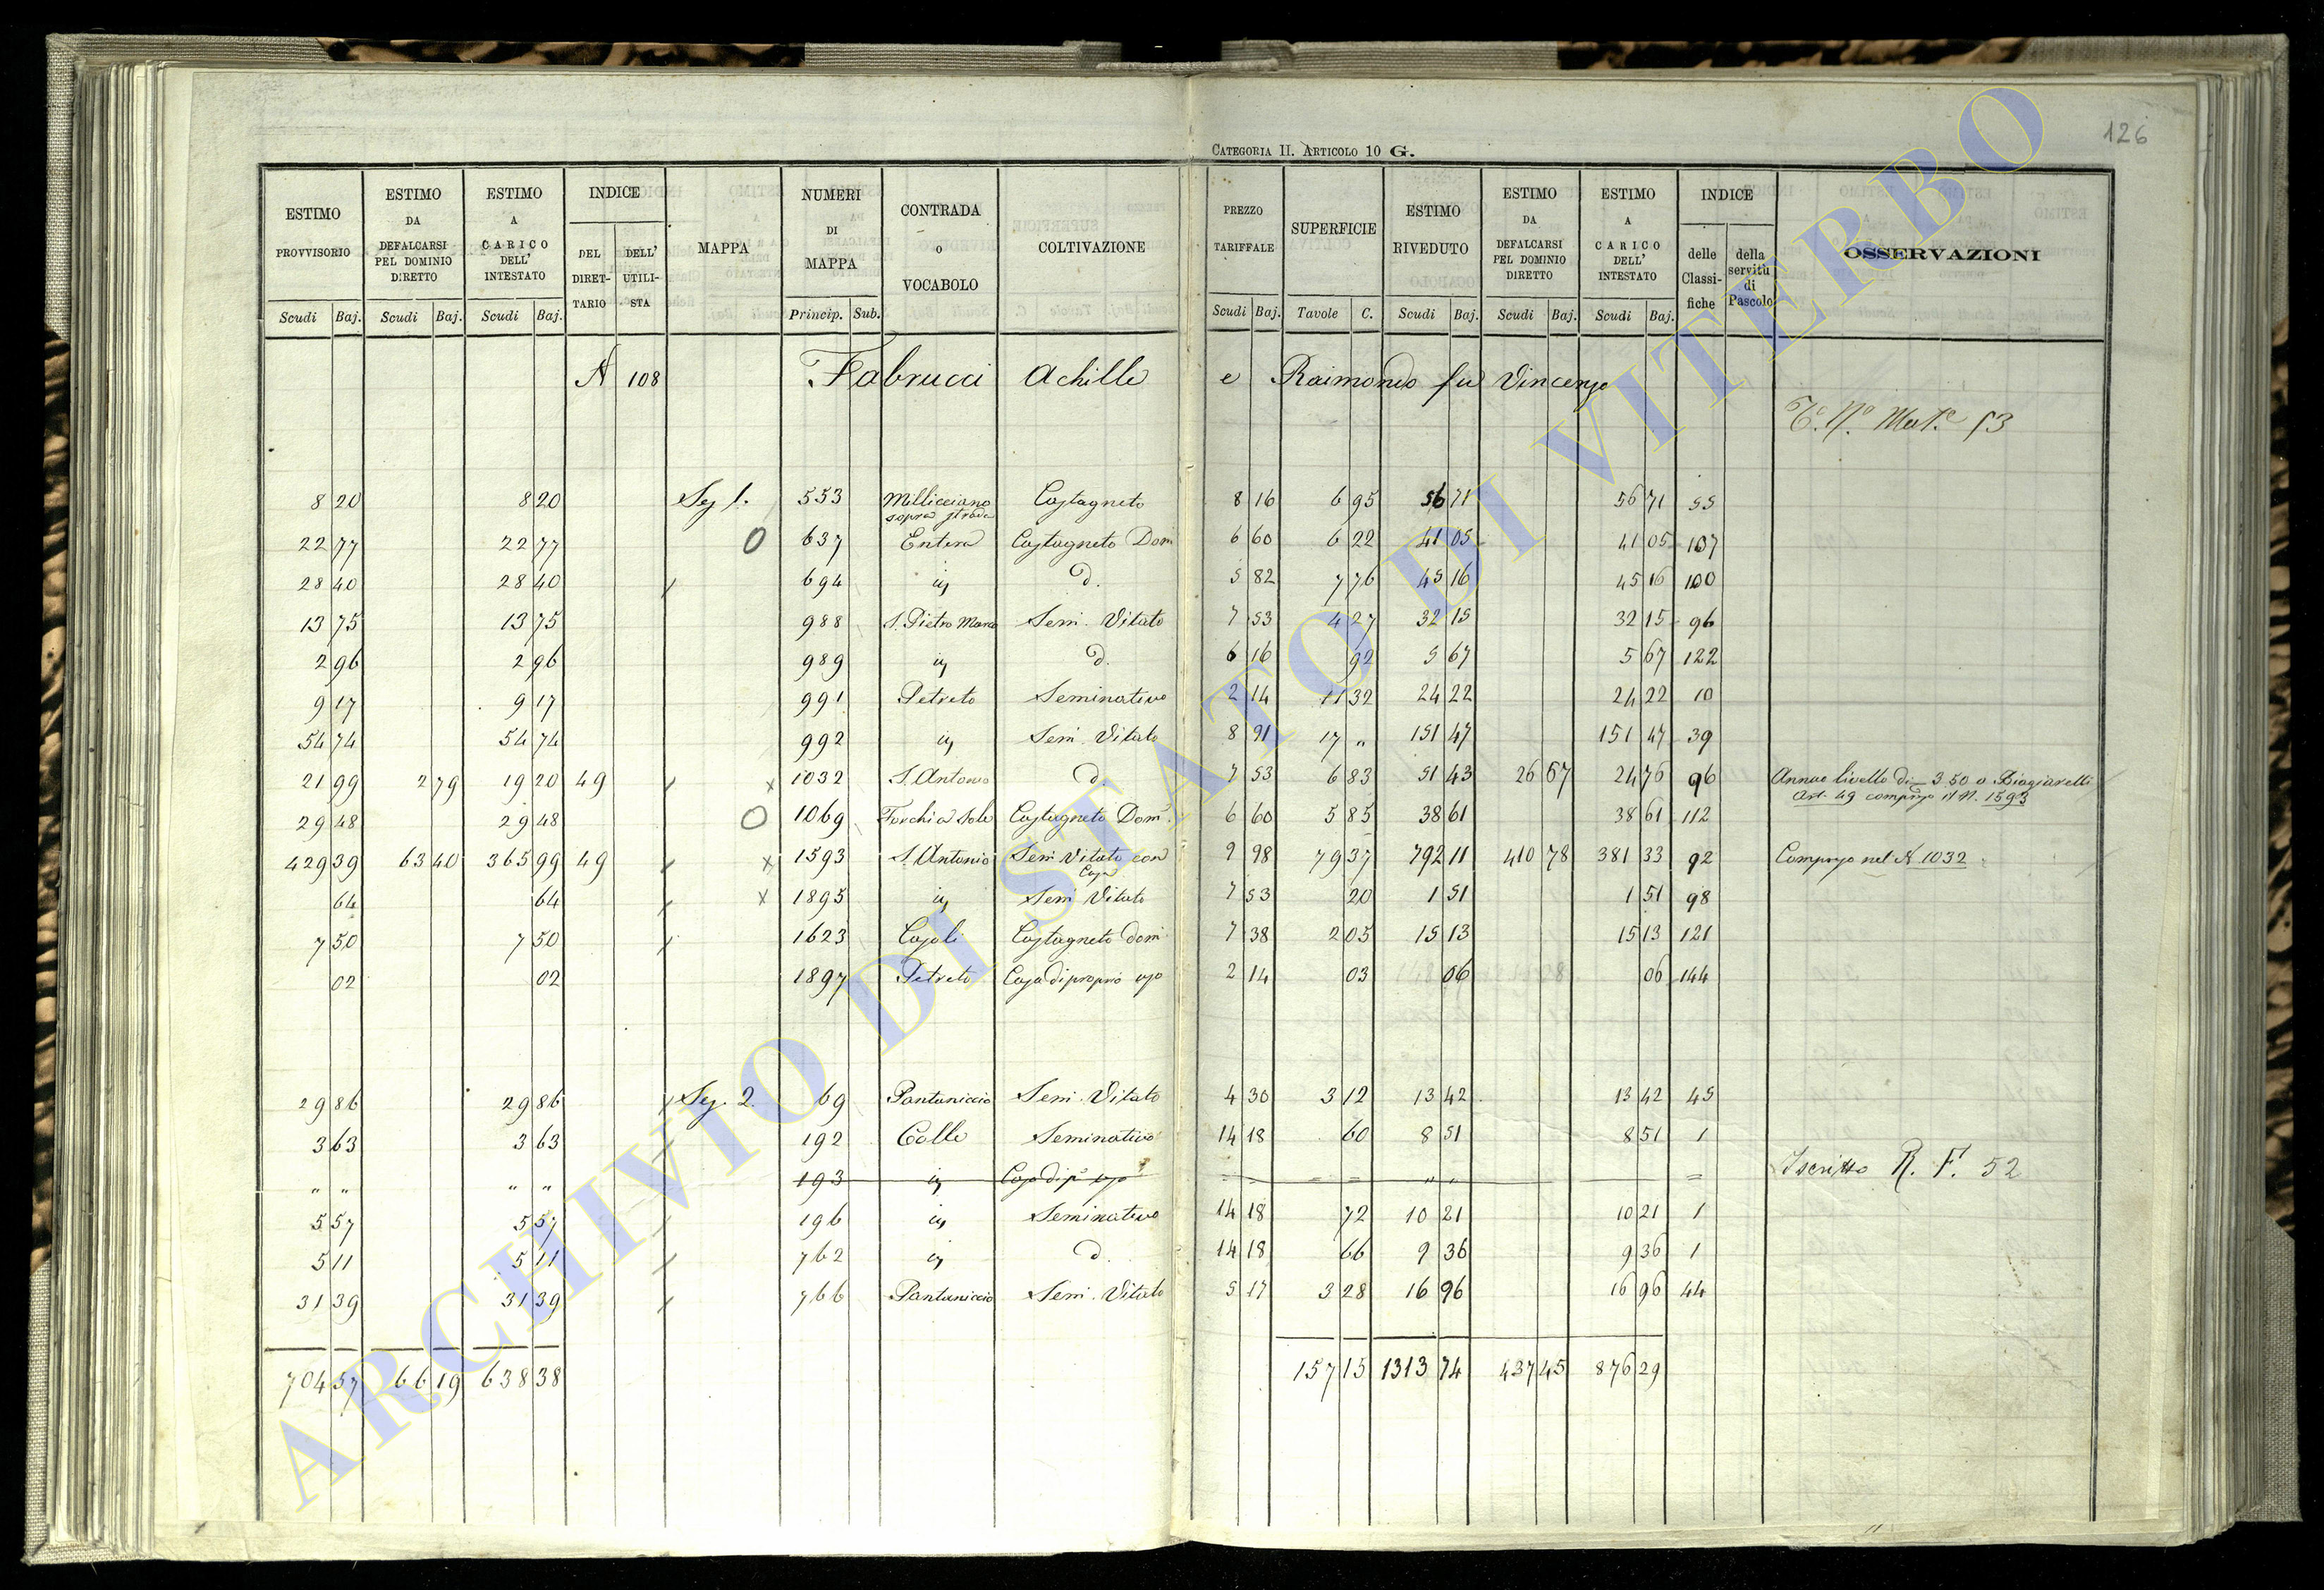 126
CATEGORIA II. ARTICOLO 10 G.
ESTIMO PROVVISORIO Scudi Baj. ESTIMO DA DEFALCARSI PEL DOMINIO DIRETTO Scudi Baj. ESTIMO A CARICO DELL' INTESTATO Scudi Baj. INDICE DEL DIRET-TARIO DELL' UTILI-STA MAPPA NUMERI DI MAPPA Princip. Sub. CONTRADA O VOCABOLO COLTIVAZIONE PREZZO TARIFFALE Scudi Baj. SUPERFICIE Tavole C. ESTIMO RIVEDUTO Scudi Baj. ESTIMO DA DEFALCARSI PEL DOMINIO DIRETTO Scudi Baj. ESTIMO A CARICO DELL' INTESTATO Scudi Baj. INDICE delle Classi-fiche della servitù di Pascolo OSSERVAZIONI
N 108 Fabrucci Achille e Raimondo fu Vincenzo
8 20 8 20 Sez 1. 553 Millicciano sopra strada Castagneto 8 16 6 95 56 71 56 71 55
22 77 22 77 O 637 Entera Castagneto Dom 6 60 6 22 41 05 41 05 107
28 40 28 40 694 id. 5 82 7 76 45 16 45 16 100
13 75 13 75 988 S. Pietro Semi. Vitato 7 53 4 27 32 15 32 15 96
2 96 2 96 989 d. 6 16 92 5 67 5 67 122
9 17 9 17 991 Petreto Seminativo 2 14 11 32 24 22 24 22 10
54 74 54 74 992 Semi. Vitato 8 91 17 " 151 47 151 47 39
21 99 2 79 19 20 49 x 1032 S. Antonio d. 7 53 6 83 51 43 26 67 24 76 96 Annuo livello di 3.50 a Biagiarelli Art. 49 compreso il N. 1593
29 48 29 48 O 1069 Forchia Sole Castagneto Dom. 6 60 5 85 38 61 38 61 112
429 39 63 40 365 99 49 x 1593 S. Antonio Semi Vitato con Casa 9 98 79 37 792 11 410 78 381 33 92 Compreso nel N 1032
64 64 x 1895 Semi Vitato 7 53 20 1 51 1 51 98
7 50 7 50 1623 Casali Castagneto dom. 7 38 2 05 15 13 15 13 121
02 02 1897 Petreto Casa di proprio uso 2 14 03 06 06 144
29 86 29 86 Sez. 2. 69 Pantaniccio Semi. Vitato 4 30 3 12 13 42 13 42 45
3 63 3 63 192 Colle Seminativo 14 18 60 8 51 8 51 1
" " " " 193 Casa di p. uso = = = = " " = Iscritto R. F. 52
5 57 5 57 196 Seminativo 14 18 72 10 21 10 21 1
5 11 5 11 762 d. 14 18 66 9 36 9 36 1
31 39 31 39 766 Pantaniccio Semi. Vitato 5 17 3 28 16 96 16 96 44
704 57 66 19 638 38 157 15 1313 74 437 45 876 29
ARCHIVIO DI STATO DI VITERBO